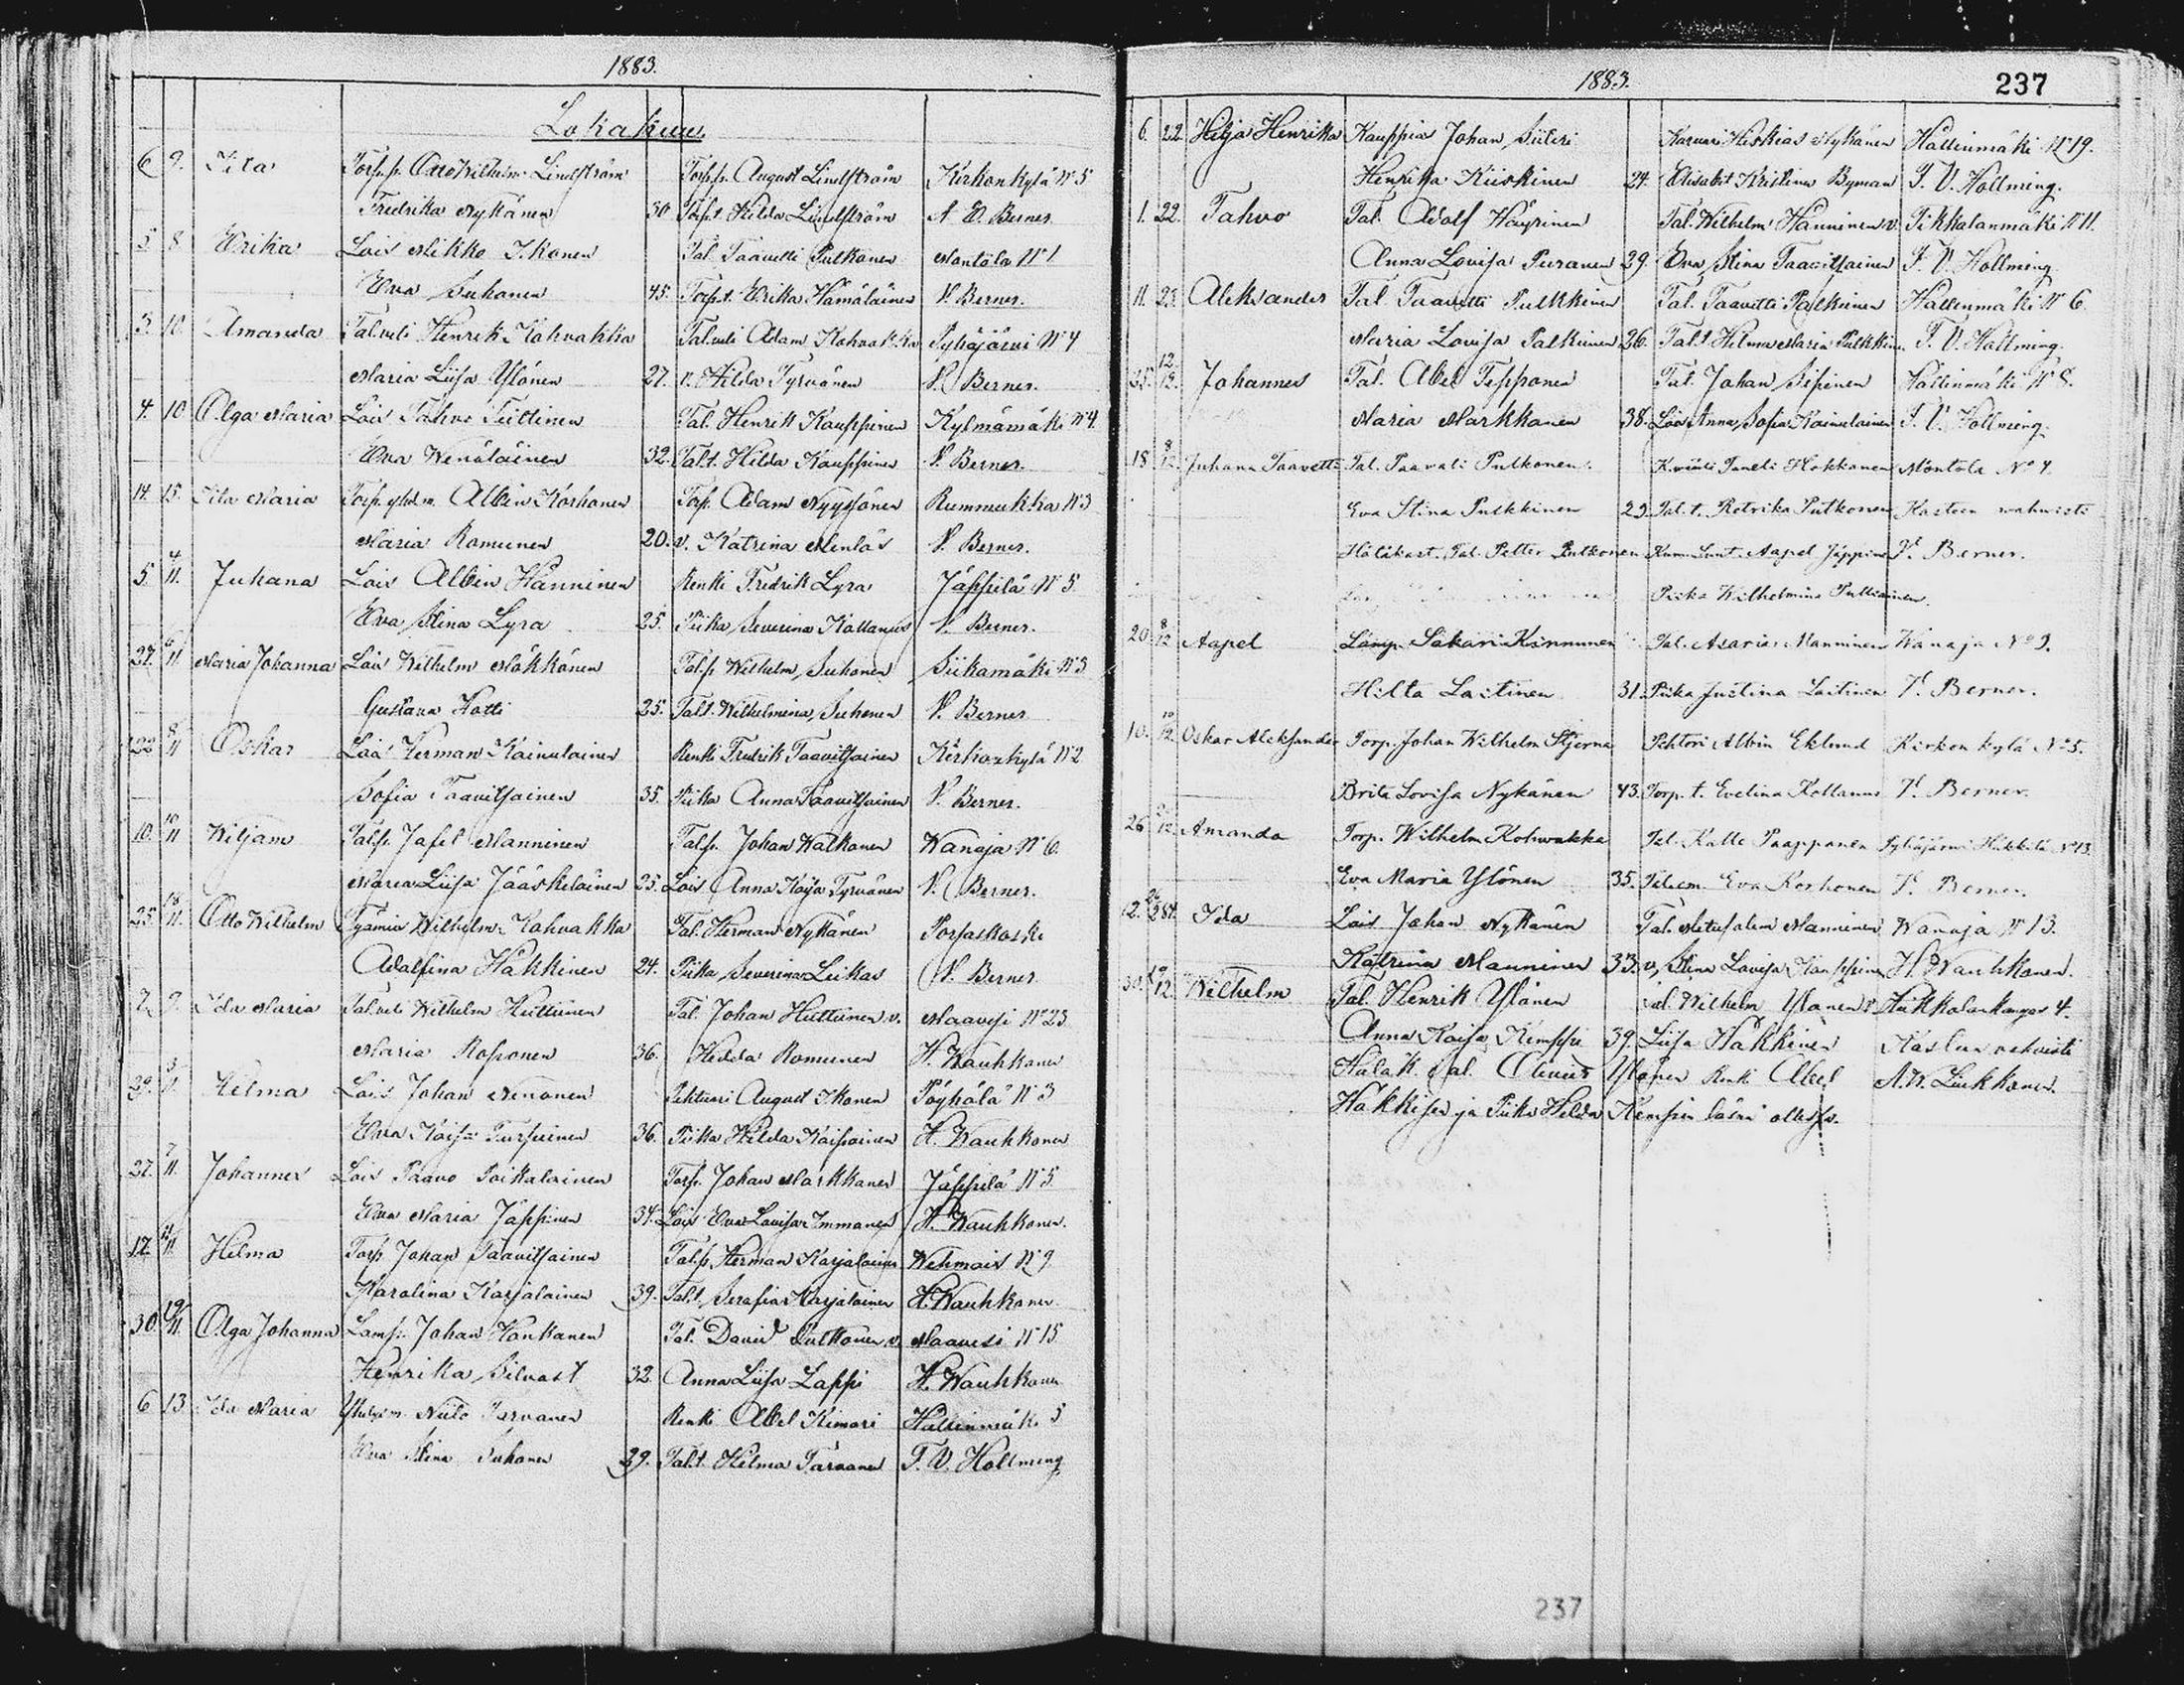 1883.
Lokakuu.
6 9. Ida Torp.p. Otto Wilhelm Lindström Torp.p. August Lindström Kirkonkylä N:o 5
Fredrika Nykänen 30 Torp.t. Hilda Lindström N. E. Berner
5 8 Erika Lois Mikko Ikonen Tal. Taavetti Putkonen Montola N:o 1
Eva Suhonen 45. Torp.t. Erika Hämäläinen V. Berner.
3. 10 Amanda Tal.veli Henrik Kohvakka Tal.veli Adam Kohvakka Pyhäjärvi N:o 4
Maria Liisa Ylönen 27. v. Hilda Tyrvänen V. Berner.
4. 10 Olga Maria Lois Tahvo Tiittinen Tal. Henrik Kauppinen Kylmämäki N:o 4.
Eva Wenäläinen 32. Tal.t. Hilda Kauppinen V. Berner.
14. 15. Ida Maria Torp. yhd.m. Albin Korhonen Torp. Adam Nyyssönen Rummukka N:o 3
Maria Romunen 20. v. Katrina V. Berner.
5. 4/11. Juhana Lois Albin Hänninen Renki Fredrik Lyra Jäppilä N:o 5
Eva Stina Lyra 25. Piika Severina Kallanus V. Berner.
27. 6/11. Maria Johanna Lois Wilhelm Mäkkönen Tal.p. Wilhelm Suhonen Siikamäki N:o 3
Gustava Hotti 25. Tal.t. Wilhelmina Suhonen V. Berner
22 8/11 Oskar Lois Herman Kainulainen Renki Fredrik Taavitsainen Kirkonkylä N:o 2
Sofia Taavitsainen 35. Piika Anna Taavitsainen V. Berner.
10. 10/11 Wiljam Tal.p. Jafet Manninen Tal.p. Johan Walkonen Wanaja N:o 6.
Maria Liisa Jääskeläinen 25. Lois Anna Kaisa Tyrvänen V. Berner.
25. 18/11. Otto Wilhelm Työmies Wilhelm Kohvakka Tal. Herman Nykänen Porsaskoski
Adolfina Häkkinen 24. Piika Severina Leikas V. Berner
2. 9. Ida Maria Tal.veli Wilhelm Huttunen Tal. Johan Huttunen v. Maavesi N:o 23
Maria Roponen 36. Hedda Romunen H. Wauhkonen
29. 3/11. Helma Lois Johan Nenonen Pehtuori August Ikonen Pöyhölä N:o 3
Eva Kaisa Turpeinen 36. Piika Hilda Kaipainen H. Wauhkonen
27. 7/11. Johannes Lois Paavo Poikolainen Torp. Johan Markkanen Jäppilä N:o 5
Eva Maria Jäppinen 34. Lois Eva Lovisa Immonen H. Wauhkonen.
17. 11/11. Helma Torp. Johan Taavitsainen Tal.p. Herman Karjalainen Wehmais N:o 9
Karolina Karjalainen 39. Tal.t. Serafia Karjalainen H. Wauhkonen.
30. 19/11. Olga Johanna Lamp. Johan Haukanen Tal. David Putkonen v. Maavesi N:o 15
Henrika Silvast 32. Anna Liisa Lappi H. Wauhkonen
6 13 Ida Maria Niilo Tarvanen Renki Abel Kimari Hällinmäki 5
Eva Stina Suhonen 29. Tal.t. Helma Tarvanen T. V. Hollming
1883.
237
6. 22 Hilja Henrika Kauppias Johan Siiteri Karvari Heskias Nykänen Hällinmäki N:o 19.
Henrika Kiiskinen 24. Elisabet Kristina Byman T. V. Hollming.
1. 22. Tahvo Tal. Adolf Häyrinen Tal. Wilhelm Hänninen v. Tikkalanmäki N:o 11.
Anna Lovisa Puranen 29. Eva Stina Taavitsainen T. V. Hollming.
11. 25. Aleksander Tal. Taavetti Pulkkinen Tal. Taavetti Pulkkinen Hällinmäki N:o 6.
Maria Lovisa Pulkkinen 26. Tal.t. Hilma Maria Pulkkinen T. V. Hollming.
25. 12/12. Johannes Tal. Abel Tepponen Tal. Johan Sepinen Hällinmäki N:o 8.
Maria Markkanen 38. Lois Anna Sofia Kainulainen T. V. Hollming.
18 8/12. Juhana Taavetti Tal. Paavali Putkonen. Taneli Hokkanen Montola No 4.
Eva Stina Pulkkinen 23. Tal.t. Retrika Putkonen Kasteen wahwisti
Hätäkast. Tal. Petter Putkonen Kum. Lent. Aapel Jäppinen V. Berner.
Piika Wilhelmina Pulkkinen.
20. 8/12 Aapel Lamp. Sakari Kinnunen Tal. Asarias Manninen Wanaja No 9.
Hilta Laitinen 31. Piika Justina Laitinen V. Berner.
10. 10/12 Oskar Aleksander Torp. Johan Wilhelm Stjerna Pehtori Albin Eklund Kirkonkylä No 5.
Brita Lovisa Nykänen 43. Torp. t. Evelina Kallanus V. Berner.
26 12. Amanda Torp. Wilhelm Kohwakka Tal. Kalle Paappanen Pyhäjärvi Häkkilä No 13.
Eva Maria Ylönen 35. Tal.em. Eva Korhonen V. Berner.
12. Ida Lois Johan Nykänen Tal. Metusalem Manninen Wanaja N:o 13.
Katrina Manninen 33. v. Stina Lovisa Kauppinen H. Wauhkonen.
30. 12. Wilhelm Tal. Henrik Ylönen Tal. Wilhelm Ylönen v. Häkkolankangas 4.
Anna Kaisa Kemppi 39. Liisa Häkkinen Kasteen vahvisti
Hätäk. Tal. Ylönen Renki Abel A. W. Liukkonen.
Häkkisen ja Piika Hilda Kempin läsnä ollessa.
237